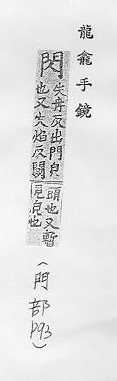 龍龕手鏡
閃失冉反出門皃
也又失焰反闚
頭也又暫
見皃也
(門部 p93)